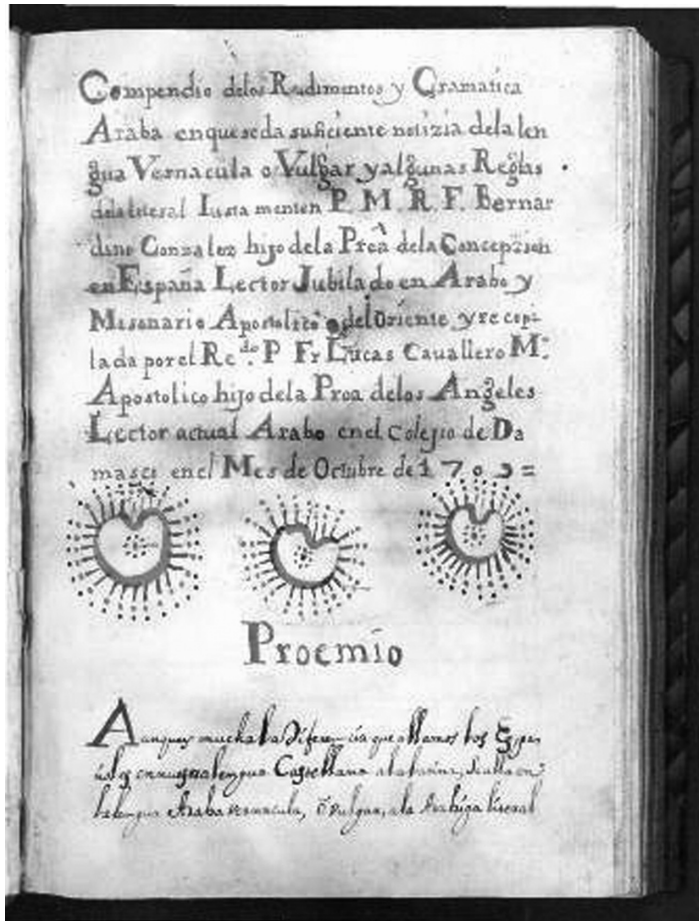 Compendio delos Rudimentos y Gramatica
Araba en que se da suficiente notizia dela len
gua Vernacula o Vulgar y algunas Reglas
dela literal Iusta mente n P. M. R. F. Bernar
dino Gonzalez hijo dela Proã dela Concepzion
en España Lector Jubilado en Arabo y
Misonario Apostolico del Oriente y recopi
lada por el Re.do P Fr Lucas Cauallero M.o
Apostolico hijo dela Proa delos Angeles
Lector actual Arabo en el Colejio de Da
masco en el Mes de Octubre de 1703=
Proemio
Aunque es mucha la diferencia que allamos los Espan
oles en nuestra lengua Castellana ala latina, se alla en
la lengua Araba vernacula, ô vulgar, ala Arabiga literal